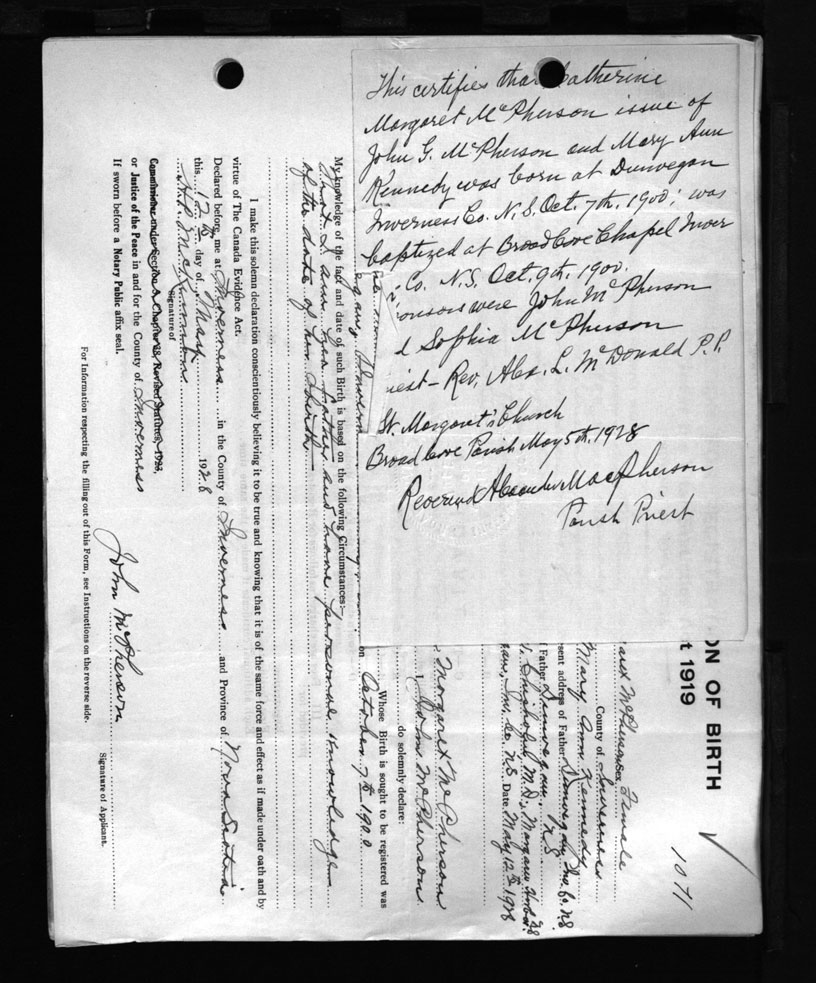 This certifies that Catherine
Margaret McPherson issue of
John G. McPherson and Mary Ann
Kennedy was born at Dunvegan
Inverness Co. N.S. Oct. 7th. 1900; was
baptized at Broad Cove Chapel Inver
Co. N.S. Oct. 9th. 1900.
onsors were John McPherson
d Sophia McPherson
iest - Rev. Alex. L. McDonald P.P.
St. Margaret's Church
Broad Cove Parish May 5th. 1928
Reverend Alexander MacPherson
Parish Priest
ON OF BIRTH
t 1919
1071
aret McPherson Sex Female
County of Inverness
Mary Ann Kennedy
esent address of Father Dunvegan, Inv. Co. N.S.
f Father Dunvegan, N.S.
Chisholm, M.D., Margaree Harbor
Inv. Co. N.S. Date May 12th 1928
I, John McPherson
do solemnly declare:
Margaret McPherson
Whose Birth is sought to be registered was
on October 7th 1900
My knowledge of the fact and date of such Birth is based on the following Circumstances:—
that I am her father and have personal knowledge
of the date of her birth
I make this solemn declaration conscientiously believing it to be true and knowing that it is of the same force and effect as if made under oath and by
virtue of The Canada Evidence Act.
Declared before me at Inverness in the County of Inverness and Province of Nova Scotia
this 12th day of May 1928
Signature of
Commissioner under section Chapter 38, Revised Statutes, 1923,
or Justice of the Peace in and for the County of Inverness
If sworn before a Notary Public affix seal.
John McPherson
Signature of Applicant.
For Information respecting the filling out of this Form, see Instructions on the reverse side.